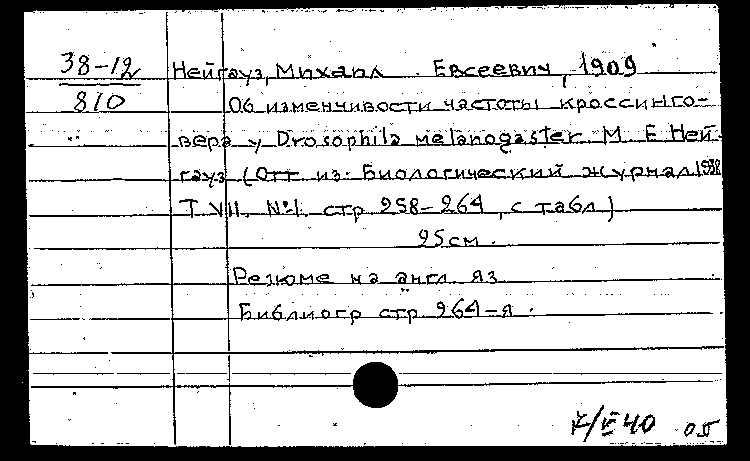 38-12
810
Нейгауз, Михаил Евсеевич, 1909
Об изменчивости частоты кроссинго-
вера у Drosophila melanogaster М. Е Ней-
гауз (Отт из. Биологический журнал 1938
Т VII. №1. стр 258-264, с табл)
25см.
Резюме на англ. яз
Библиогр стр. 264-я.
40